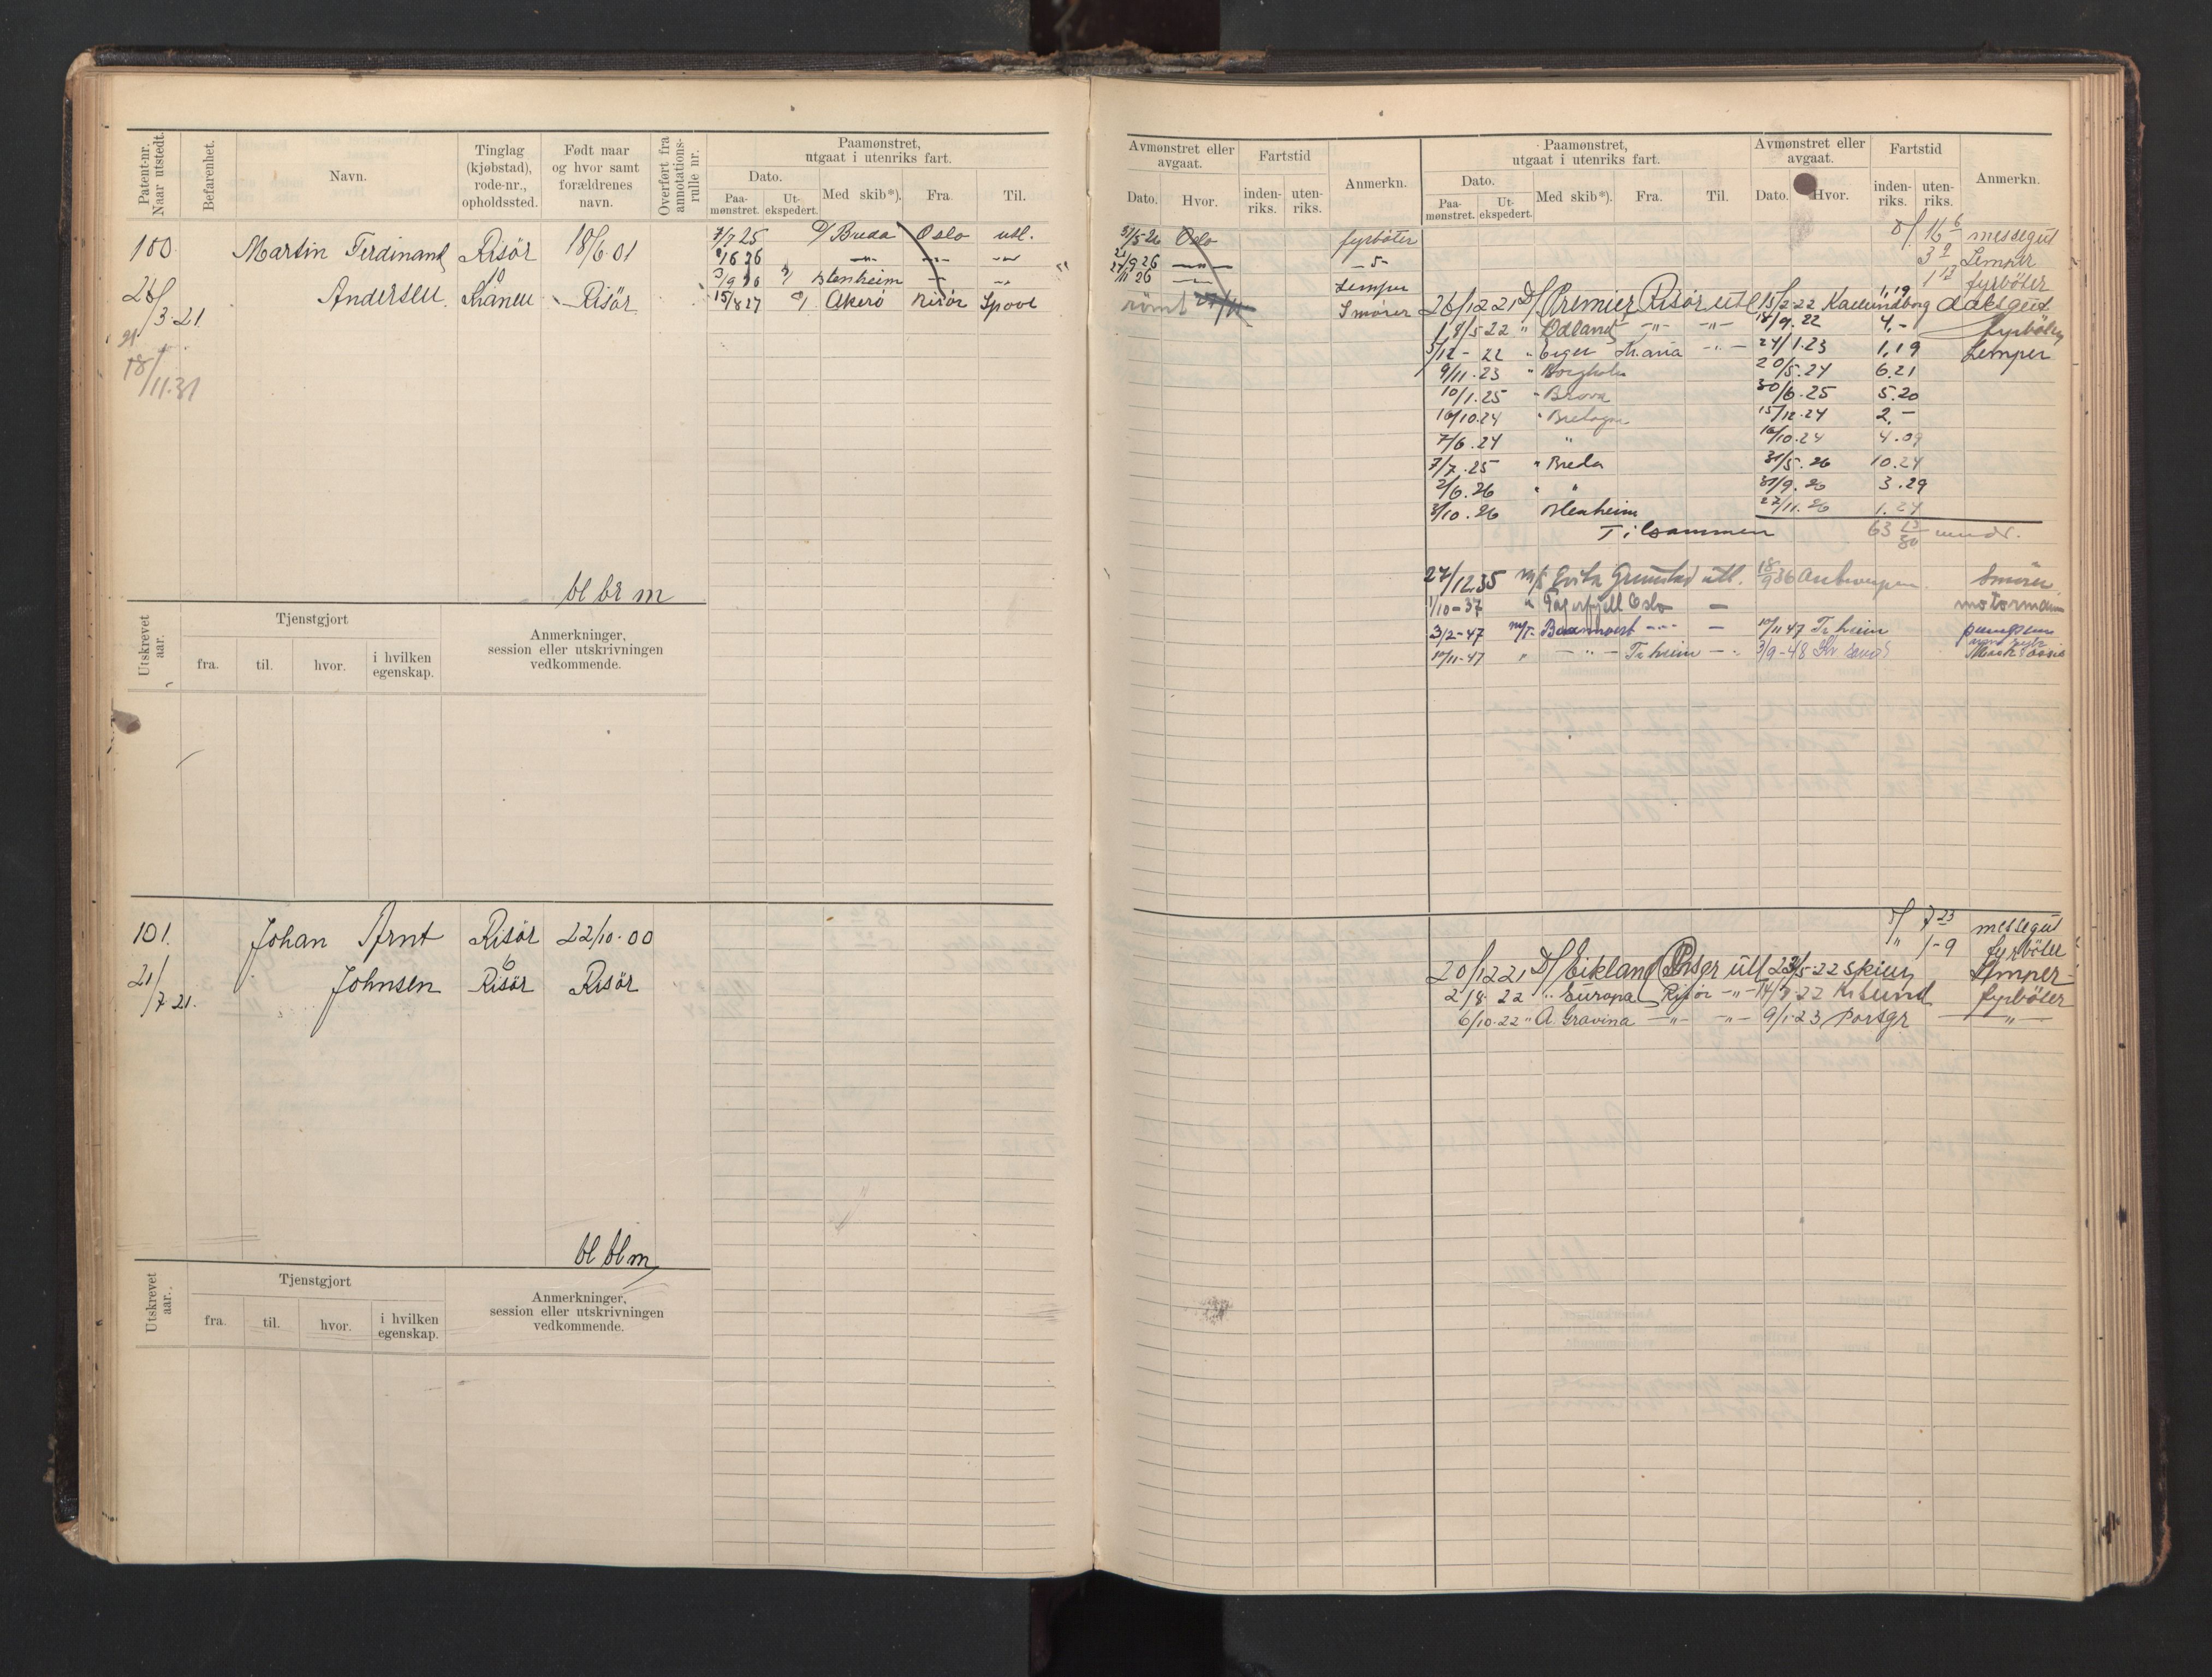 Patent-nr. Naar utstedt. Befarenhet. Navn. Tinglag (kjøbstad), rode-nr., opholdssted. Født naar og hvor samt forældrenes navn. Overført fra annotations-rulle nr. Paamønstret, utgaat i utenriks fart. Dato. Paa-mønstret. Ut-ekspedert. Med skib*). Fra. Til.
100. Martin Ferdinand Risör 18/6.01 7/7 25 Breda Oslo utl.
2/6 26 -"- -"- -"-
26/3.21 Andersen Risör 3/9 26 Blenheim - -"-
15/8 27 Akerö Risör Spool
18/11.31
bl br m
Utskrevet aar. Tjenstgjort fra. til. hvor. i hvilken egenskap. Anmerkninger, session eller utskrivningen vedkommende.
101. Johan Arnt Risör 22/10.00
6
21/7 21. Johnsen Risör Risör
bl bl m
Utskrevet aar. Tjenstgjort fra. til. hvor. i hvilken egenskap. Anmerkninger, session eller utskrivningen vedkommende.
Avmønstret eller avgaat. Dato. Hvor. Fartstid inden-riks. uten-riks. Anmerkn. Paamønstret, utgaat i utenriks fart. Dato. Paa-mønstret. Ut-ekspedert. Med skib*). Fra. Til. Avmønstret eller avgaat. Dato. Hvor. Fartstid inden-riks. uten-riks. Anmerkn.
31/5-26 Oslo fyrböter 16 6 messegut
21/9 26 -"- 3 9 Lemper
27/11 26 -"- Lemper 1 13 fyrböter
römt Smörer 26/12 21 D/ Premier Risör utl 15/2-22 Kallundborg 1,19 daksgut
18/5-22 " Odland -"- -"- 18/9.22 4,- fyrböter
5/12-22 " Eger Kr.ania -"- 24/1.23 1,19 Lemper
9/11.23 " Borgholm 20/5.24 6.21
10/1.25 " Brova 30/6.25 5.20
16/10.24 " Bretagne 15/12.24 2,-
7/6.24 " 16/10.24 4.09
7/7.25 " Breda 31/5.26 10.24
2/6.26 " " 31/9.26 3.29
3/10.26 Blenheim 27/11.26 1.24
Tilsammen 63 13/30 mndr.
27/12 35 m/s Evita Grimstad utl. 18/9 36 Antwerpen Smörer
1/10-37 " Fagerfjell Oslo - motormann
3/2-47 m/t 10/11 47 Tr.heim
10/11-47 " -"- Tr.heim -"- 3/9-48 Kr.sand
7 23 messegut
" 1-9 fyrböter
20/12 21 D/ Eikland utl 23/5-22 Skien Lemper
2/8 22 " Europa Risör -"- 14/9-22 Kr.sund fyrböter
6/10-22 " A. Gravina -"- -"- 9/1-23 Porsgr -"-